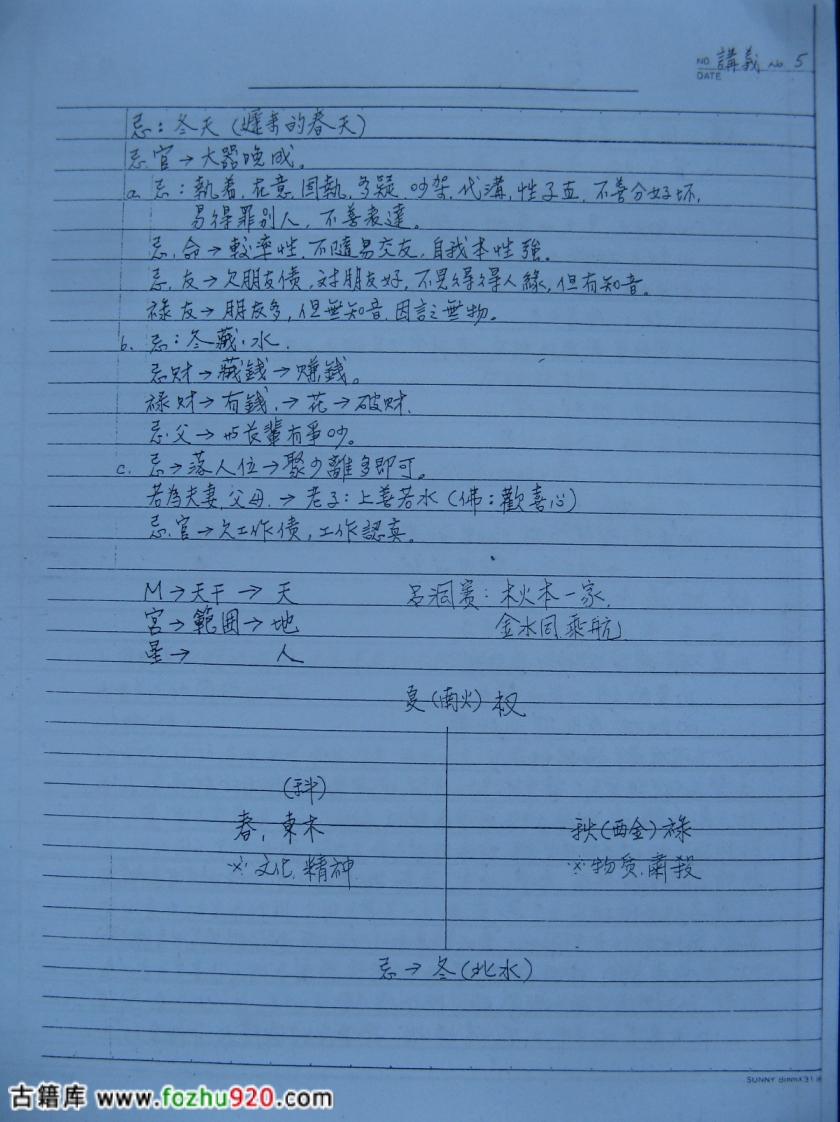 NO. 講義 No 5
DATE
忌：冬天（遲來的春天）
忌.官→大器晚成。
a. 忌：執着.在意.固執.多疑.吵架.代溝.性子直.不善分好坏.
易得罪別人.不善表達。
忌.命→較率性.不隨易交友.自我本性強。
忌.友→欠朋友債,对朋友好,不見得得人緣,但有知音。
祿友→朋友多,但無知音.因言之無物。
b. 忌：冬藏.水.
忌財→藏錢→賺錢。
祿財→有錢.→花→破財.
忌.父→与長輩有爭吵。
c. 忌→落人位→聚少離多即可。
若為夫妻.父母.→老子：上善若水（佛：歡喜心）
忌.官→欠工作債,工作認真。
M→天干→天 呂洞賓：木火本一家.
宮→範圍→地 金水同乘航
星→ 人
夏（南火）权
（科）
春,東木 秋（西金）祿
※文化.精神 ※物质.肅殺
忌→冬（北水）
古籍库 www.fozhu920.com